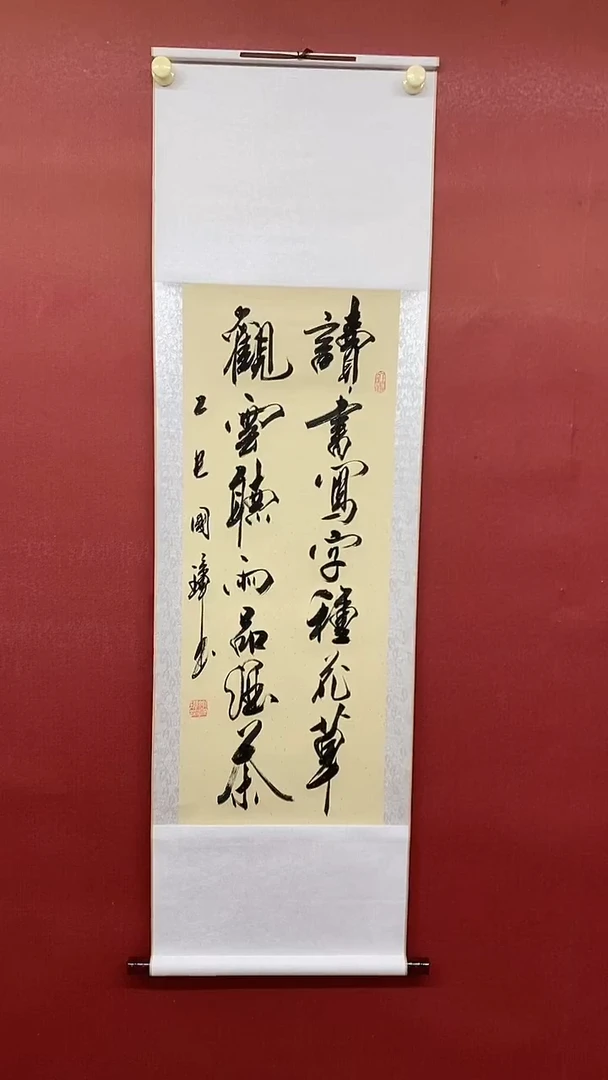 讀書寫字種花草
觀雲聽雨品經茶
乙巳國璋书